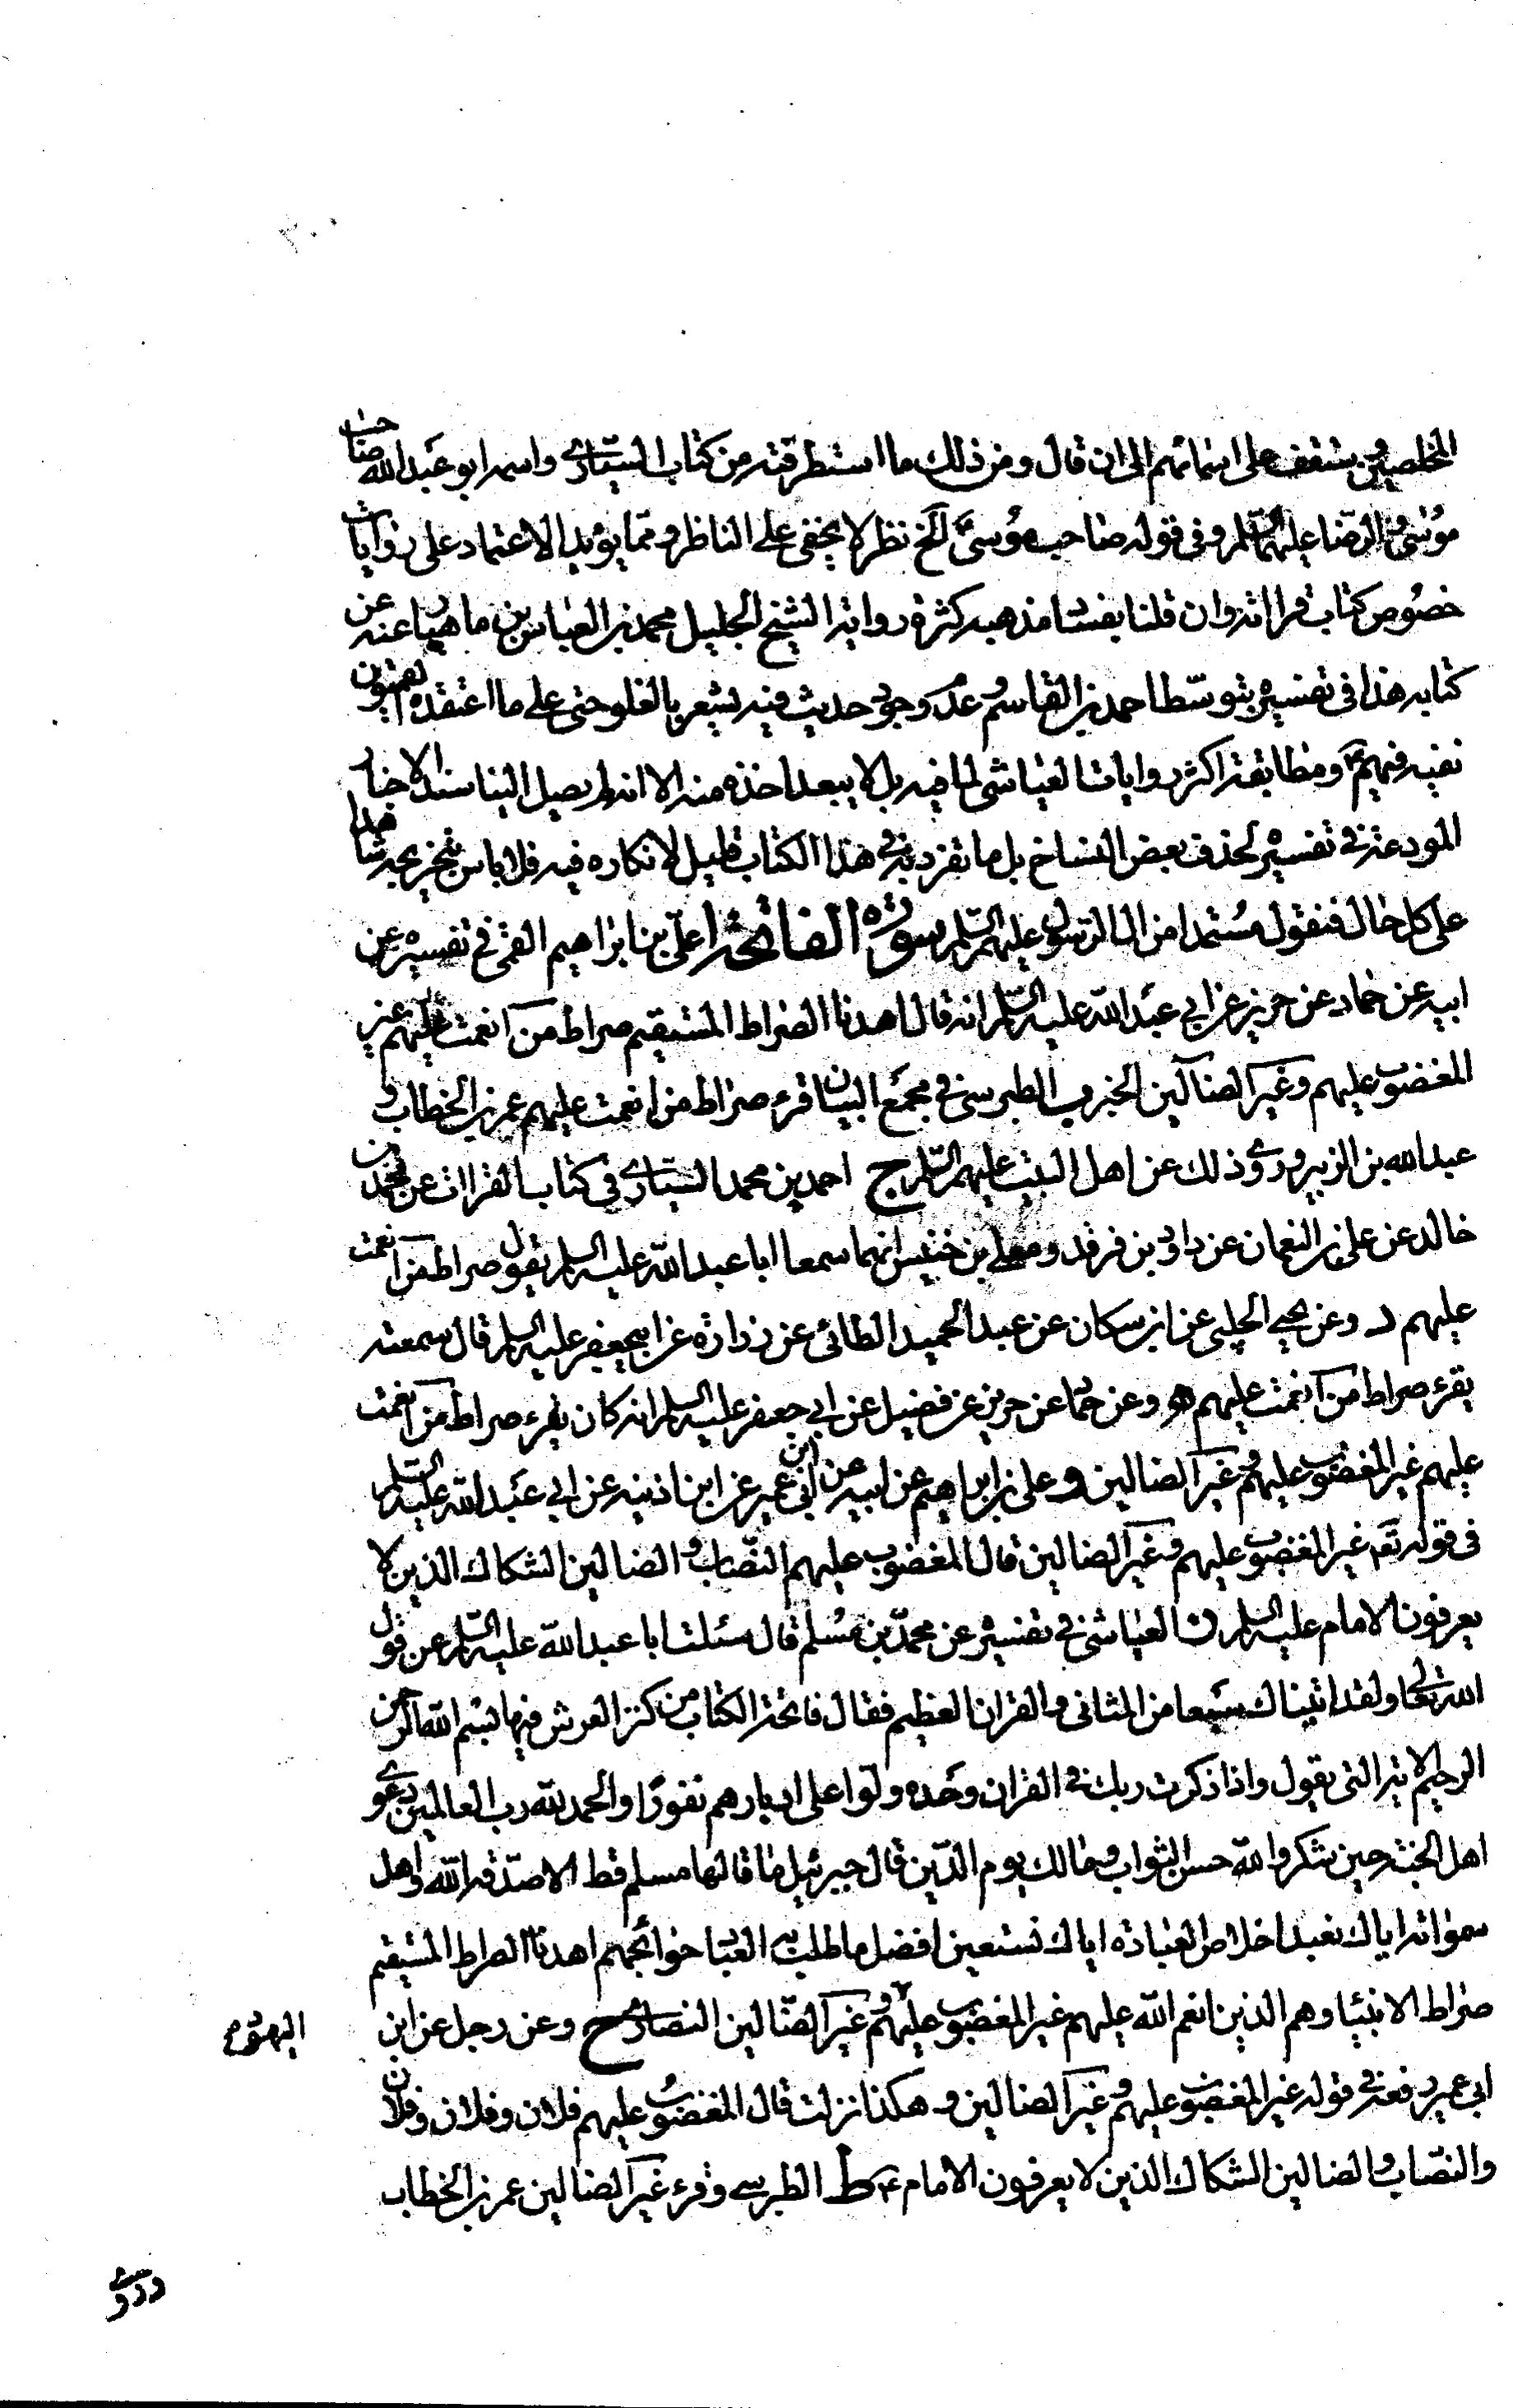 المخلصين بشفعف على ايمانهم الى ان قال ومن ذلك ما استطرفته من كتاب السياري واسمه ابو عبد الله صاحب
موسى والرضا عليهما السلم وفي قوله صاحب موسى الخ نظر لا يخفى على الناظر ومما يؤيد الاعتماد على روايات
خصوص كتاب قراءاته وان قلنا بفساد مذهبه كثرة رواية الشيخ الجليل محمد بن العباس بن ماهيار عنه عن
كتابه هذا في تفسيره بتوسط احمد بن القاسم وعدم وجود حديث فيه يشعر بالغلو حتى على ما اعتقده القميون
نفيه فيهم ع ومطابقة اكثر روايات العياشي لما فيه بل لا يبعد اخذه منه الا انه لم يصل الينا سند الاخبار
المودعة في تفسيره لحذف بعض النساخ بل ما تفرد به في هذا الكتاب قليل لا نكارة فيه فلا باس بتخريجه شاهدا
على كل حال فنقول مستمدا من ال الرسول عليهم السلم سورة الفاتحة ا علي بن ابراهيم القمي في تفسيره عن
ابيه عن حماد عن حريز عن ابي عبد الله عليه السلم انه قال اهدنا الصراط المستقيم صراط من انعمت عليهم غير
المغضوب عليهم وغير الضالين الخبر ب الطبرسي في مجمع البيان قرء صراط من انعمت عليهم عمر بن الخطاب و
عبد الله بن الزبير وروي ذلك عن اهل البيت عليهم السلم ج احمد بن محمد السياري في كتاب القراات عن محمد بن
خالد عن علي بن النعمان عن داود بن فرقد ومعلى بن خنيس انهما سمعا ابا عبد الله عليه السلم يقول صراط من انعمت
عليهم د وعن يحيى الحلبي عن ابن مسكان عن عبد الحميد الطائي عن زرارة عن ابي جعفر عليه السلم قال سمعته
يقرء صراط من انعمت عليهم ه وعن حماد عن حريز عن فضيل عن ابي جعفر عليه السلم انه كان يقرء صراط من انعمت
عليهم غير المغضوب عليهم وغير الضالين و علي بن ابراهيم عن ابيه عن ابن ابي عمير عن ابن اذينه عن ابي عبد الله عليه السلم
في قوله تعالى غير المغضوب عليهم وغير الضالين قال المغضوب عليهم النصاب والضالين الشكاك الذين لا
يعرفون الامام عليه السلم ز العياشي في تفسيره عن محمد بن مسلم قال سئلت ابا عبد الله عليه السلم عن قول
الله تعالى ولقد اتيناك سبعا من المثاني والقران العظيم فقال فاتحة الكتاب من كنز العرش فيها بسم الله الرحمن
الرحيم الاية التي يقول واذا ذكرت ربك في القران وحده ولوا على ادبارهم نفورا والحمد لله رب العالمين دعوى
اهل الجنة حين شكروا لله حسن الثواب ومالك يوم الدين قال جبرئيل ما قالها مسلم قط الا صدقه الله واهل
سمواته اياك نعبد اخلاص العبادة اياك نستعين افضل ما طلب به العباد حوائجهم اهدنا الصراط المستقيم
صراط الانبياء وهم الذين انعم الله عليهم غير المغضوب عليهم وغير الضالين النصارى ح وعن رجل عن ابن
اليهود م
ابي عمير رفعه في قوله غير المغضوب عليهم وغير الضالين وهكذا نزلت قال المغضوب عليهم فلان وفلان وفلان
والنصاب والضالين الشكاك الذين لا يعرفون الامام ع ط الطبرسي وقرء غير الضالين عمر بن الخطاب
وروي